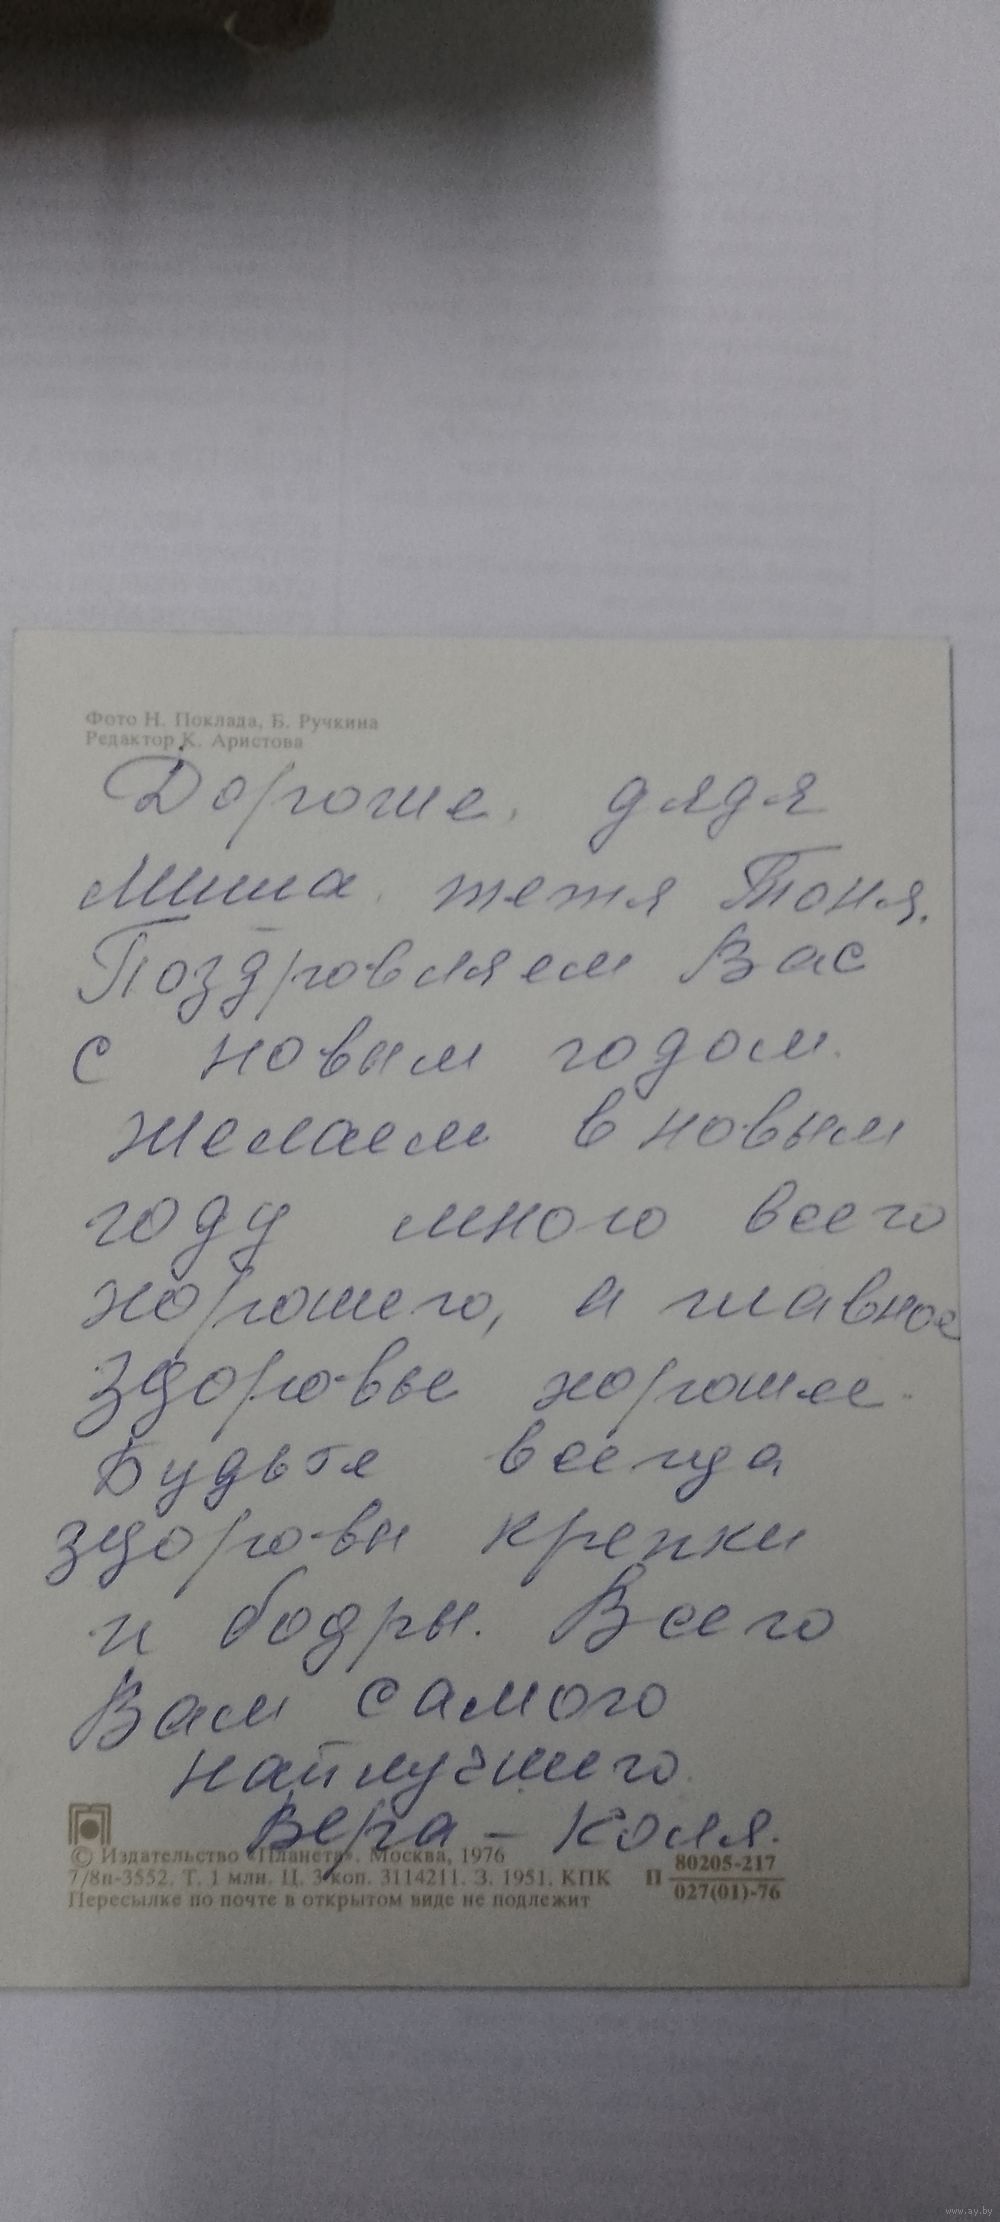 Фото Н. Поклада, Б. Ручкина
Редактор К. Аристова
Дорогие, дядя
Миша, тетя Тоня.
Поздровляем Вас
с новым годом.
Желаем в новым
году много всего
хорошего, а главное
здоровье хорошее.
Будьте всегда
здоровы крепки
и бодры. Всего
Вам самого
найлучшего.
Вера – Коля.
© Издательство «Планета». Москва, 1976
7/8п-3552. Т. 1 млн. Ц. 3 коп. 3114211. З. 1951. КПК
Пересылке по почте в открытом виде не подлежит
П 80205-217
027(01)-76
www.ay.by